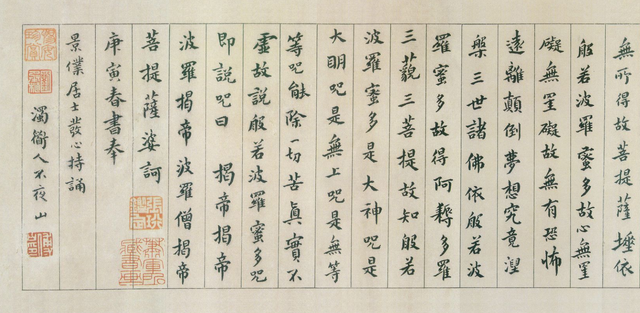 無所得故菩提薩埵依
般若波羅蜜多故心無罣
礙無罣礙故無有恐怖
遠離顛倒夢想究竟涅
槃三世諸佛依般若波
羅蜜多故得阿耨多羅
三藐三菩提故知般若
波羅蜜多是大神呪是
大明呪是無上呪是無等
等呪能除一切苦真實不
虛故說般若波羅蜜多呪
即說呪曰 揭帝揭帝
波羅揭帝波羅僧揭帝
菩提薩婆訶
庚寅春書奉
景僕居士發心持誦
濁衜人不夜山